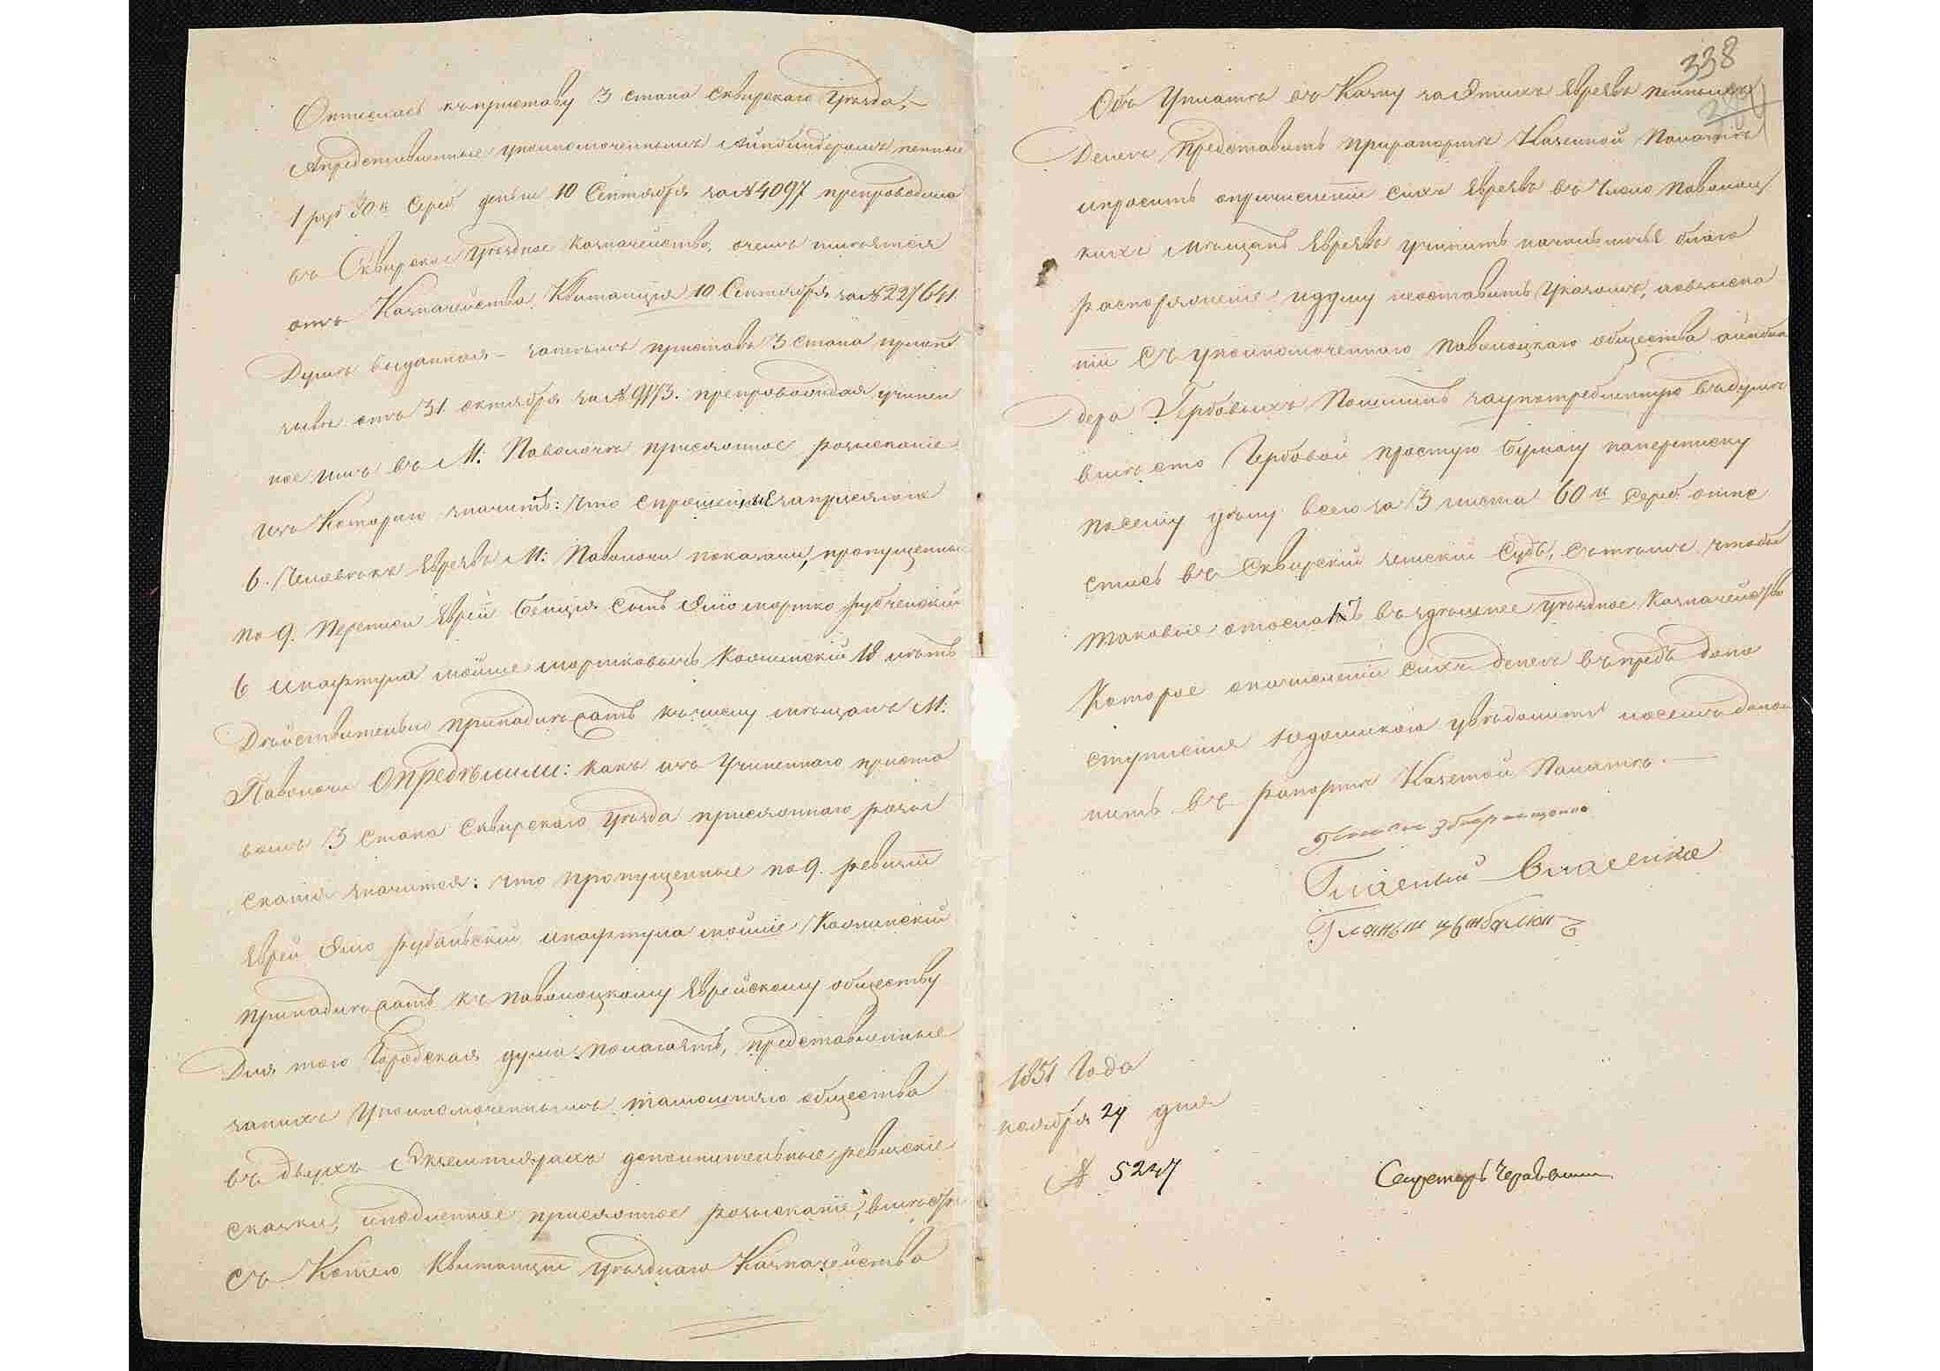 Отнеслась къ приставу 3 стана Сквирскаго уезда,
Апредставленные уполномоченнымъ Айнбиндеромъ пенные
1 руб 30 к Сереб деньги 10 Сентября за № 4097 препроводила
въ Сквирское Уездное Казначейство, очемъ имеется
отъ Казначейства Квитанция 10 Сентября за №
Думе выданная – запемъ приставъ 3 стана
отъ 31 октября за № 9173. препровождая учинен
ное имъ въ М: Паволоче присяжное розысканіе
изъ Котораго значитъ: что спрошенные заприсягою
6. Человекъ Евреевъ М: Паволочи показали, пропущенные
по 9. Переписи Еврей сынъ Эліо Мортко
6 инафтула мойше мортковичъ Каминскій 18 летъ
Действительно принадлежатъ къ числу мещанъ М:
Паволочи Определили: какъ изъ Учиненнаго приста
вомъ 3 Стана Сквирскаго Уезда присяжнаго розы
сканія значится: что пропущенные по 9. ревизіи
Еврей Эліо инафтула мойше Каминскій
принадлежатъ къ Паволоцкому Еврейскому обществу
Для того Городская дума полагаетъ, представленные
занихъ Уполномоченнымъ тамошняго общества
въ двухъ Экземплярахъ дополнительные ревизскіе
сказки, присяжное розысканіе, вместе
съ Копіею Квитанціи Уезднаго Казначейства
338
Объ Уплате въ Казну за этихъ Евреевъ пенныхъ
Денегъ Представить прирапорте Казенной Палате
ипросить опричисленіи сихъ Евреевъ въ Число Паволоц
кихъ мещанъ Евреевъ учинить начальничье благо
распоряженіе идуму неоставить Указомъ, овзыска
ніи съ уполномоченнаго Паволоцкаго общества айнбин
дера Гербовыхъ Пошлинъ заупотребленную въдуме
вместо Гербовой простую бумагу попереписку
посему делу всего за 3 листа 60 к Сереб. отне
стись въ Сквирскій земскій Судъ, сътемъ, чтобы
таковые отослалъ въ здешнее Уездное Казначейство
Которое озачисленіи сихъ денегъ въпредъ допо
ступленія уведомить идонесть
въ рапорте Казенной Палате. —
Гласный Власенко
Гласный Цымбалюк
1851 Года
ноября 24 дня
№ 5247
Секретарь